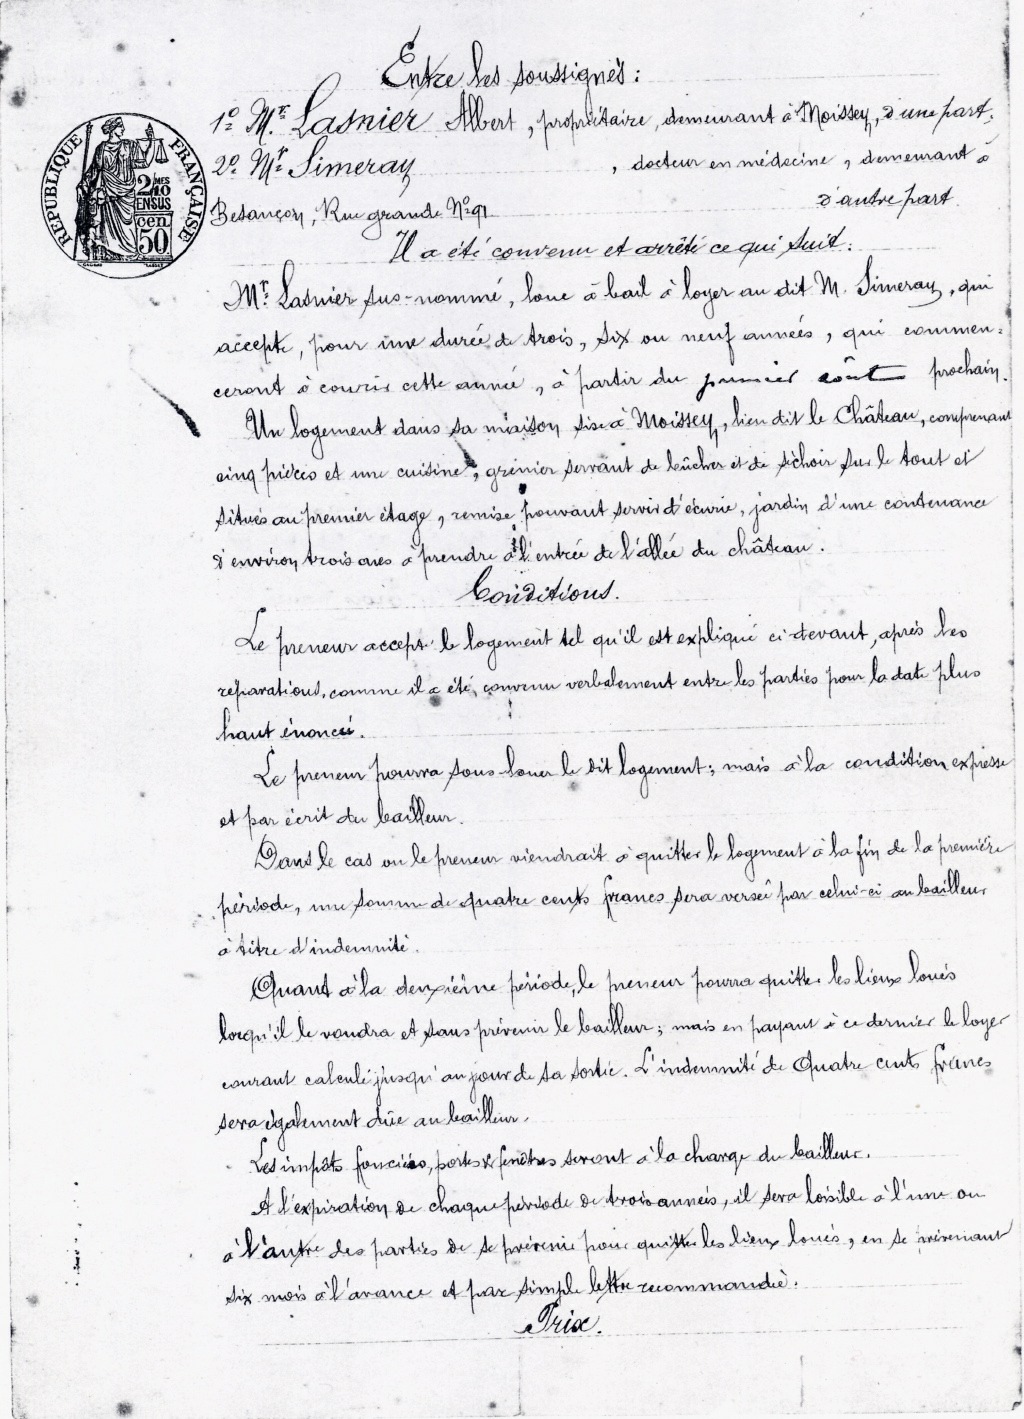 Entre les soussignés :
1º Mr Lasnier Albert, propriétaire, demeurant à Moissey, d'une part,
2º Mr Simeray , docteur en médecine, demeurant à
Besançon, Rue grande Nº 91 d'autre part.
RÉPUBLIQUE FRANÇAISE
2/10MES
EN SUS
50 cen
Il a été convenu et arrêté ce qui suit :
Mr Lasnier sus-nommé, loue à bail à loyer au dit M. Simeray, qui
accepte, pour une durée de trois, six ou neuf années, qui commen-
ceront à courir cette année, à partir du premier août prochain.
Un logement dans sa maison sise à Moissey, lieu dit le Château, comprenant
cinq pièces et une cuisine, grenier servant de bûcher et de séchoir sur le tout et
situés au premier étage, remise pouvant servir d'écurie, jardin d'une contenance
d'environ trois ares à prendre à l'entrée de l'allée du château.
Conditions.
Le preneur accepte le logement tel qu'il est expliqué ci-devant, après les
réparations, comme il a été convenu verbalement entre les parties pour la date plus
haut énoncée.
Le preneur pourra sous-louer le dit logement ; mais à la condition expresse
et par écrit du bailleur.
Dans le cas ou le preneur viendrait à quitter le logement à la fin de la première
période, une somme de quatre cents francs sera versée par celui-ci au bailleur
à titre d'indemnité.
Quant à la deuxième période, le preneur pourra quitter les lieux loués
lorsqu'il le voudra et sans prévenir le bailleur ; mais en payant à ce dernier le loyer
courant calculé jusqu'au jour de sa sortie. L'indemnité de Quatre cents francs
sera également dûe au bailleur.
Les impôts fonciers, portes & fenêtres seront à la charge du bailleur.
A l'expiration de chaque période de trois années, il sera loisible à l'une ou
à l'autre des parties de se prévenir pour quitter les lieux loués, en se prévenant
six mois à l'avance et par simple lettre recommandée.
Prix.